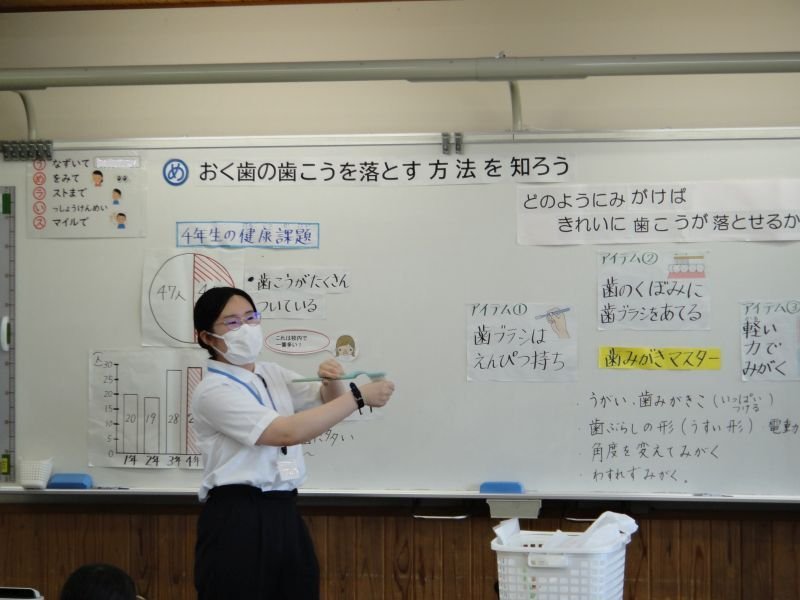 うなずいて
めをみて
ラストまで
いっしょうけんめい
スマイルで
め おく歯の歯こうを落とす方法を知ろう
どのようにみがけば
きれいに歯こうが落とせるか
4年生の健康課題
47人
・歯こうがたくさん
ついている
これは校内で
一番多い!
(人)
30
25
20
15
10
5
0
20
19
28
1年
2年
3年
4年
アイテム①
歯ブラシは
えんぴつ持ち
アイテム②
歯のくぼみに
歯ブラシをあてる
アイテム③
軽い
力で
みがく
歯みがきマスター
・うがい、歯みがきこ(いっぱいつける)
・歯ぶらしの形(うすい形)・電動
・角度を変えてみがく
・わすれずみがく。